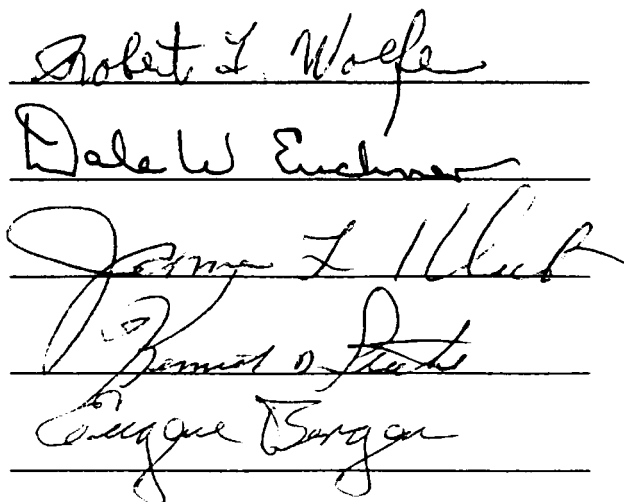 Robert L. Wolfe
Dale W Euchner
James L
Kermit D
Eugene Bergan